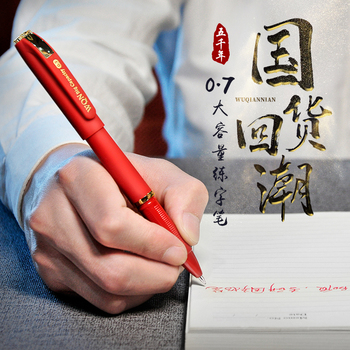 五千年
国货回潮
WUQIANNIAN
0.7
大容量练字笔
WQN Big Capacity